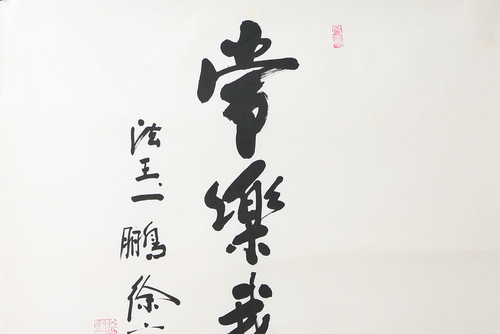 常樂我
法王一鵬徐